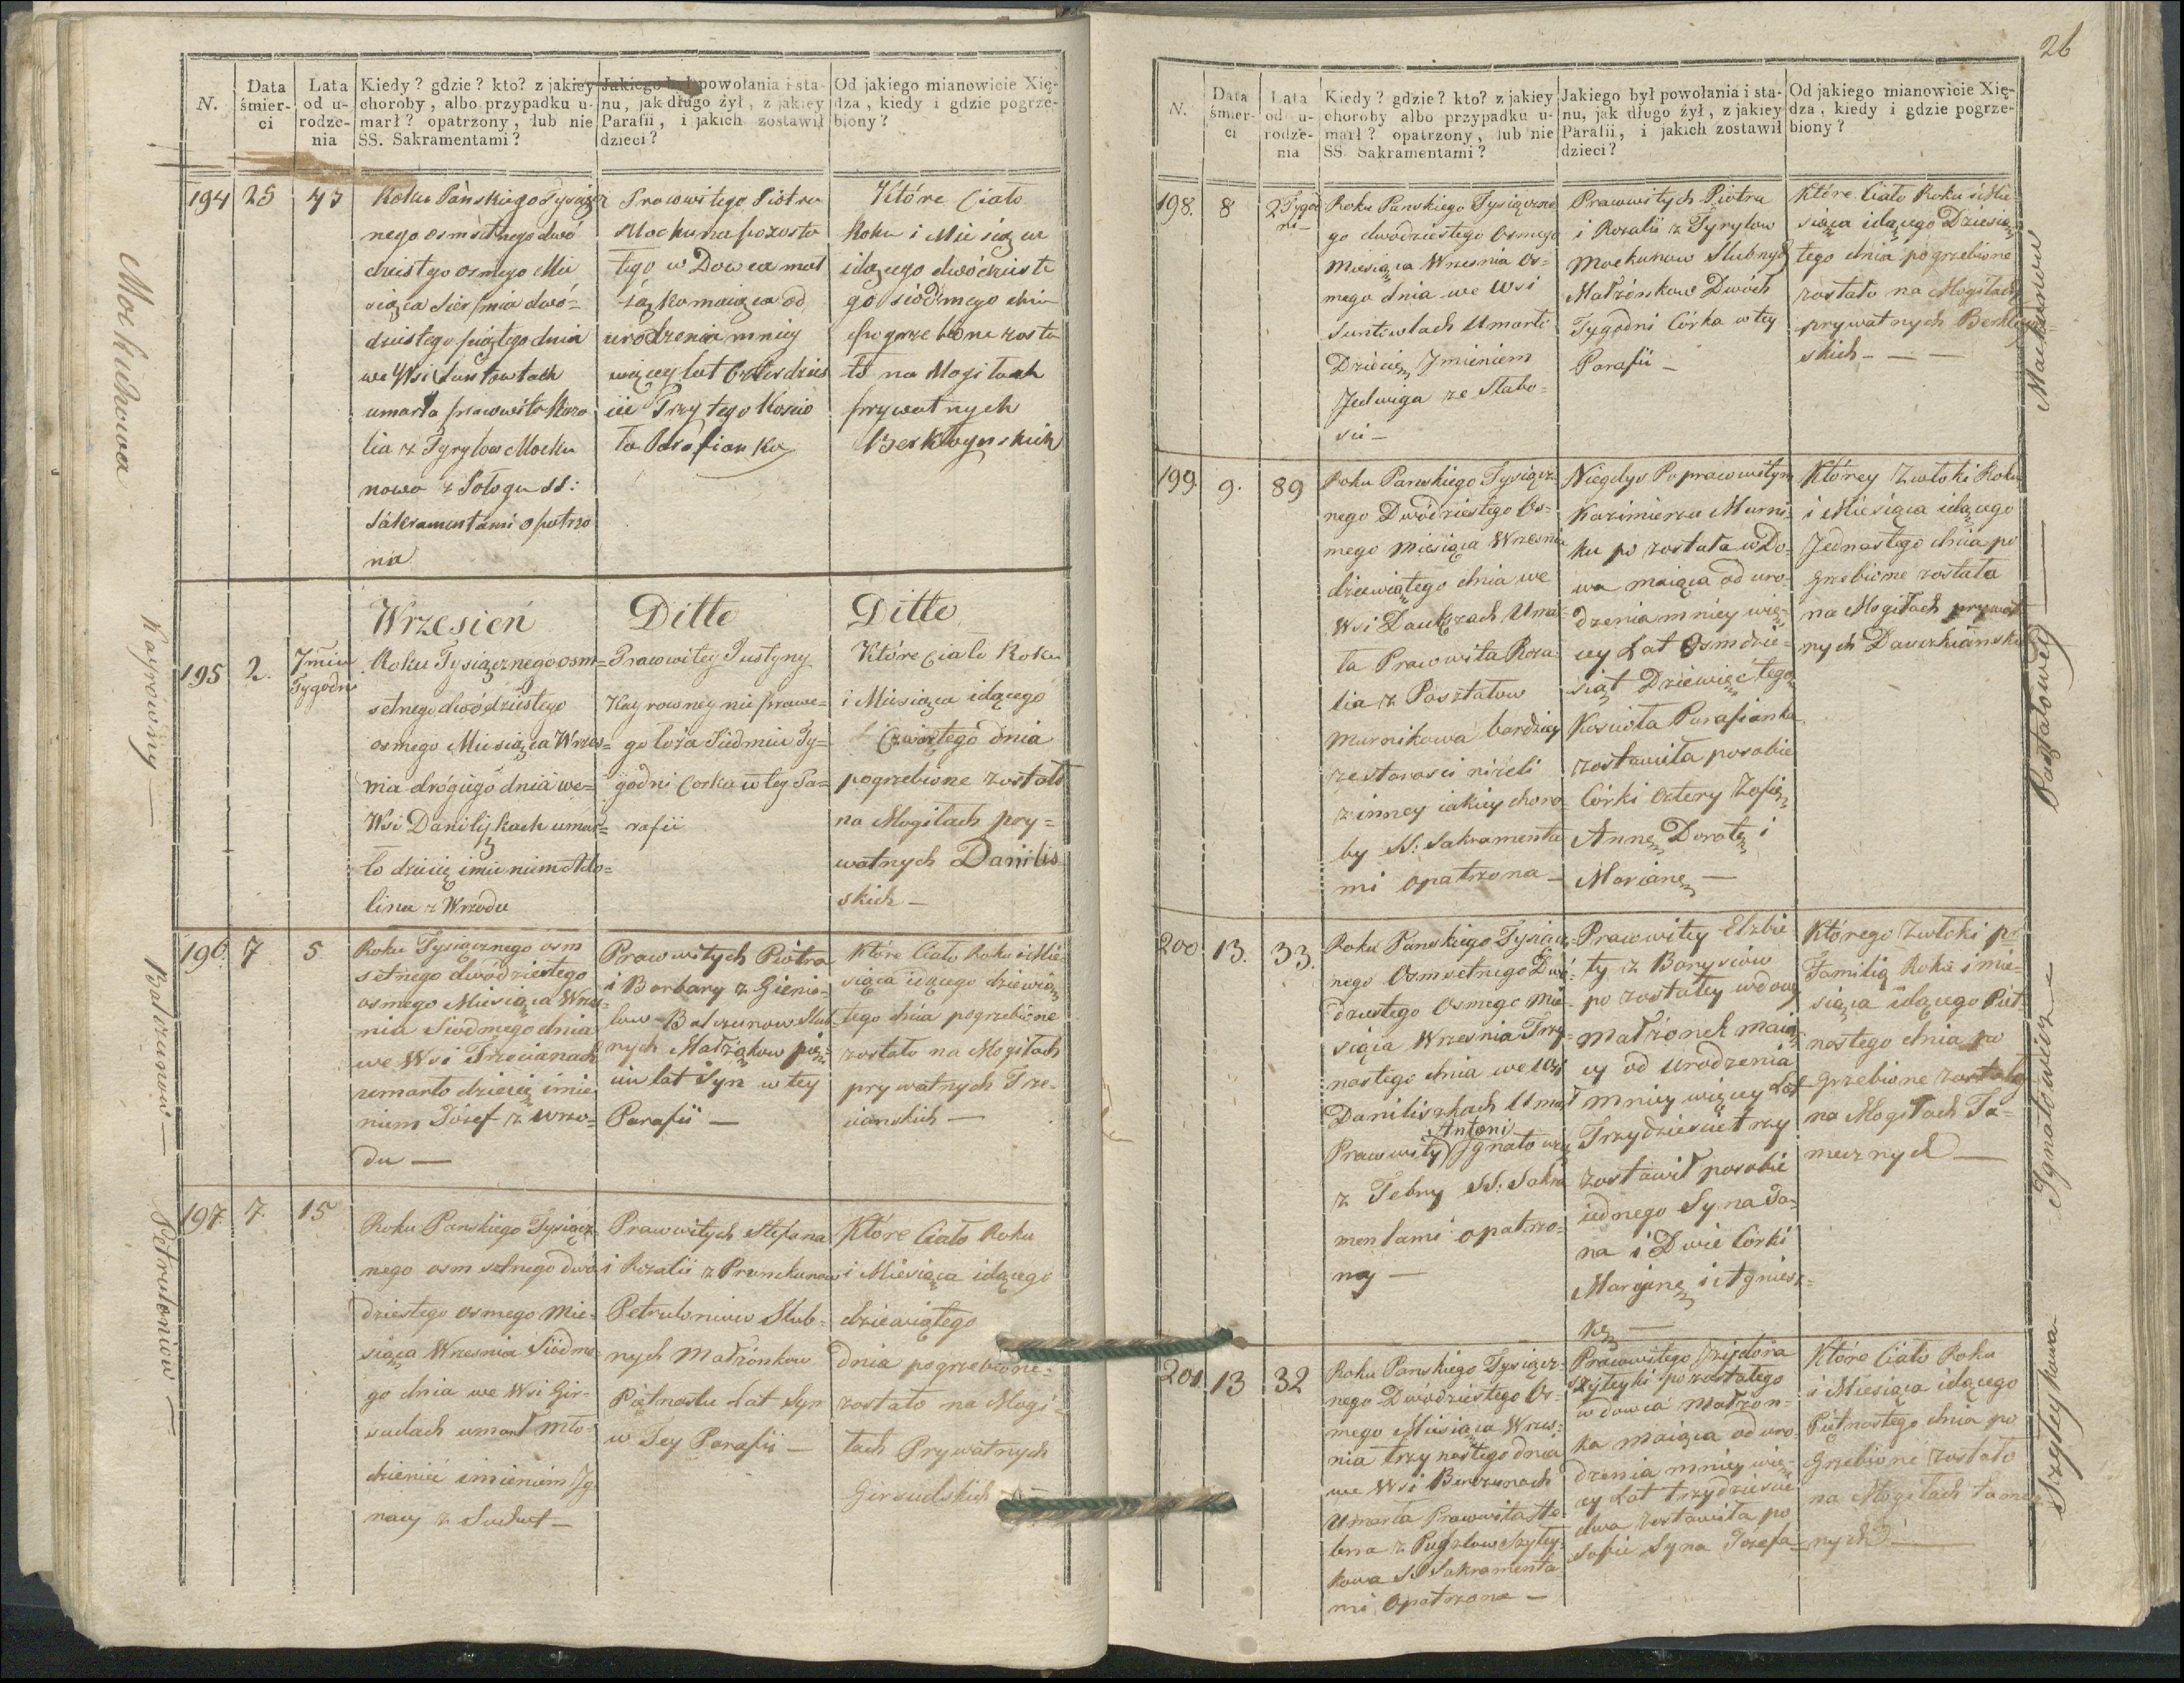 26
N.
Data
śmier-
ci
Lata
od u-
rodze-
nia
Kiedy? gdzie? kto? z jakiey
choroby, albo przypadku u-
marł? opatrzony, lub nie
SS. Sakramentami?
Jakiego był powołania i sta-
nu, jak długo żył, z jakiey
Parafii, i jakich zostawił
dzieci?
Od jakiego mianowicie Xię-
dza, kiedy i gdzie pogrze-
biony?
Mockunowa
194
25
43
Roku Pańskiego Tysiącz
nego osmsetnego dwó
dziestego osmego Mie
siąca Sierpnia dwó-
dziestego piątego dnia
we Wsi Suntowtach
umarła prawowita Roza
lia z Tyrylow Mocku
nowa z Połogu SS:
Sakramentami opatrzo
na
Prawowitego Piotra
Mockuna pozosta
łego w Dowca mał
żąka maiąca od
urodzenia mniey
więcey lat Czterdzieś
ści Trzy tego Koscio
ła Parafianka
Które Ciało
Roku i Miesiąca
idącego dwódzieste
go siódmego dnia
pogrzebione zosta
ło na Mogiłach
prywatnych
Berkłoynskich
Wrzesień
Ditto
Ditto
Kayrowny
195
2.
7miu
Tygodn
Roku Tysiącznego osm=
setnego dwódziestego
osmego Miesiąca Wrześ=
nia drógiego dnia we=
Wsi Daniliszkach umar=
ło dziecię imieniem Ado=
lina z Wrzodu
Prawowitey Justyny
Kayrowney nie prawe=
go łoża Siedmiu Ty=
godni Corka w tey Pa=
rafii
Które Ciało Roku
i Miesiąca idącego
Czwartego dnia
pogrzebione zostało
na Mogiłach pry=
watnych Danilis
skich
Balczunow
196.
7
5
Roku Tysiącznego osm
setnego dwódziestego
osmego Miesiąca Wrześ
nia Siodmego dnia
we Wsi Trzecianach
zemarło dziecię imie
niem Józef z wrzo=
du
Prawowitych Piotra
i Barbary z Gienie
low Balczunow Slub=
nych Małżąkow pię=
ciu lat Syn w tey
Parafii
Które Ciało Roku i Mie
siąca idącego dziewią
tego dnia pogrzebione
zostało na Mogiłach
prywatnych Trze-
cianskich
Petruloniow
197
7.
15
Roku Panskiego Tysiącz
nego osm setnego dwó
dziestego osmego Mie-
siąca Wrzesnia Siódme
go dnia we Wsi Gir-
sudach umarł Mło-
dzieniec imieniem Ig
nacy z Suchot
Prawowitych Stefana
i Rozalii z Prunckunow
Petruloniow Slub-
nych Małżonkow
Piętnastu Lat Syn
w Tey Parafii
Które Ciało Roku
i Miesiąca idącego
dziewiątego
dnia pogrzebione
zostało na Mogi
łach Prywatnych
Girsudskich
N.
Data
śmier-
ci
Lata
od u-
rodze-
nia
Kiedy? gdzie? kto? z jakiey
choroby albo przypadku u-
marł? opatrzony, lub nie
SS. Sakramentami?
Jakiego był powołania i sta-
nu, jak długo żył, z jakiey
Parafii, i jakich zostawił
dzieci?
Od jakiego mianowicie Xię-
dza, kiedy i gdzie pogrze-
biony?
198.
8
2 Tygod
ni
Roku Panskiego Tysiączne
go dwodziestego Osmego
Miesiąca Wrzesnia Os-
mego dnia we Wsi
Suntowtach Umarło
Dziecię Imieniem
Jedwiga ze Słabo-
sci
Prawowitych Piotra
i Rozalii z Tyrylow
Mockunow Slubnych
Małżonkow Dwóch
Tygodni Córka w tey
Parafii
Które Ciało Roku i Mie-
siąca idącego Dziesią
tego dnia pogrzebione
zostało na Mogiłach
prywatnych Berkłoyn
skich
Mockunow
199
9.
89
Roku Panskiego Tysiącz
nego Dwódziestego Os-
mego Miesiąca Wrzesnia
dziewiątego dnia we
Wsi Daukszach Umar
ła Prawowita Roza-
lia z Posztatow
Murnikowa bardziey
ze starosci niżeli
z inney iakiey choro
by SS: Sakramenta
mi opatrzona
Niegdyś Po prawowitym
Kazimierzu Murni-
ku po została wDo-
wa maiąca od uro-
dzenia mniey wię-
cey Lat Osmdzie-
siąt Dziewięć tego
Kosciola Parafianka
zostawiła po sobie
Córki cztery Zofię
Annę Dorotę i
Marianę
Którey Zwłoki Roku
i Miesiąca idącego
Jednastego dnia po
grzebione została
na Mogiłach prywat
nych Dauczkiansk
200
13.
33.
Roku Panskiego Tysiącz-
nego Osmsetnego Dwó-
dziestego Osmego Mie-
siąca Wrzesnia Trzy-
nastego dnia we Wsi
Daniliszkach Umarł
Antoni
Prawowity Ignatowicz
z Febry SS: Sakra
mentami opatrzo-
ny
Prawowitey Elzbie
ty z Borysiow
po zostałey wdowy
małżonek maią
cy od urodzenia
mniey więcey Lat
Trzydziesci trzy
zostawił po sobie
iednego Syna Ja-
na i Dwie Córki
Marjanę i Agniesz-
kę
Którego Zwłoki
Familią Roku i mie-
siąca idącego Pięt
nastego dnia po
grzebione zostały
na Mogiłach Ta-
mecznych
Ignatowicz
201
13
32
Roku Panskiego Tysiącz-
nego Dwódziestego Os-
mego Miesiąca Wrześ-
nia trzynastego dnia
we Wsi
Umarła Prawowita He-
lena z Szyley
kowa SS Sakramenta
mi Opatrzona
Prawowitego Jzydora
Szyleyki pozostałego
wdowca małżon-
ka maiąca od uro-
dzenia mniey wię-
cey Lat trzydziesci
dwa zostawiła po
sobie Syna Józefa
Które Ciało Roku
i Miesiąca idącego
Piętnastego dnia po
grzebione zostało
na Mogiłach tamecz
nych
Szyleykowa